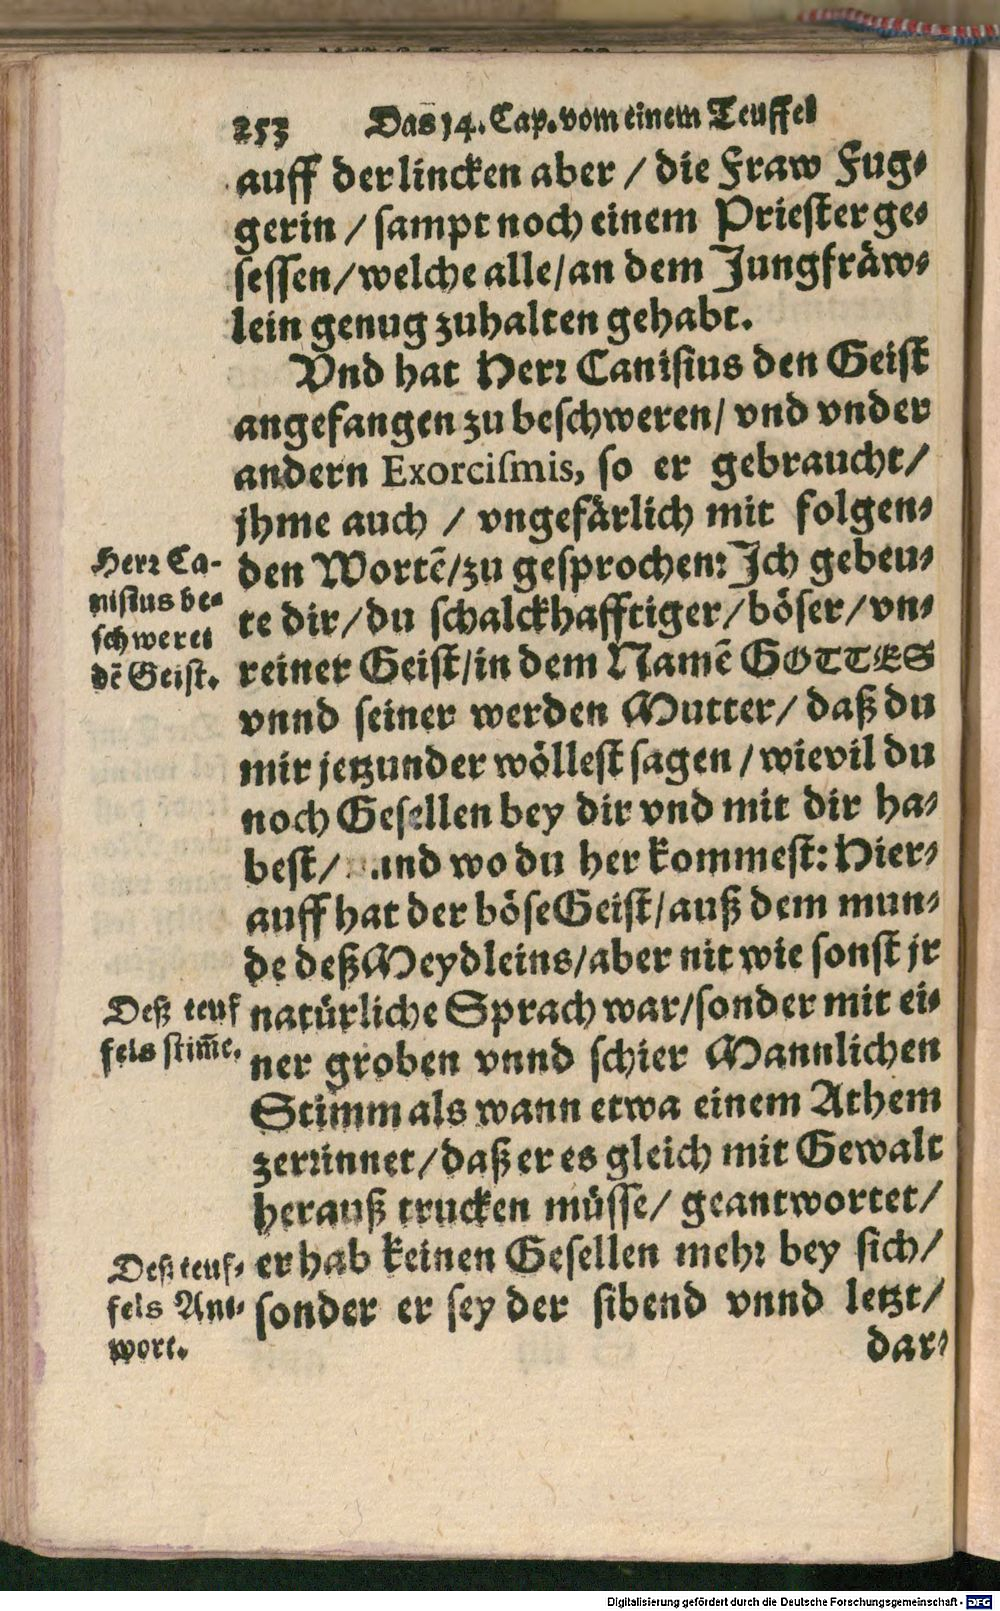 253 Das 14. Cap. vom einem Teuffel
auff der lincken aber / die Fraw Fug⸗
gerin / sampt noch einem Priester ge⸗
sessen / welche alle / an dem Jungfräw⸗
lein genug zuhalten gehabt.
Vnd hat Herr Canisius den Geist
angefangen zu beschweren / vnd vnder
andern Exorcismis, so er gebraucht /
jhme auch / vngefärlich mit folgen⸗
den Wortē / zu gesprochen: Ich gebeu⸗
te dir / du schalckhafftiger / böser / vn⸗
reiner Geist / in dem Namē GOTTES
vnnd seiner werden Mutter / daß du
mir jetzunder wöllest sagen / wievil du
noch Gesellen bey dir vnd mit dir ha⸗
best / vnnd wo du her kommest: Hier⸗
auff hat der böse Geist / auß dem mun⸗
de deß Meydleins / aber nit wie sonst jr
natürliche Sprach war / sonder mit ei⸗
ner groben vnnd schier Mannlichen
Stimm als wann etwa einem Athem
zerrinnet / daß er es gleich mit Gewalt
herauß trucken müsse / geantwortet /
er hab keinen Gesellen mehr bey sich /
sonder er sey der sibend vnnd letzt /
dar⸗
Herr Ca-
nisius be⸗
schweret
dē Geist.
Deß teuf
fels stim̄e.
Deß teuf⸗
fels Ant⸗
wort.
Digitalisierung gefördert durch die Deutsche Forschungsgemeinschaft - DFG